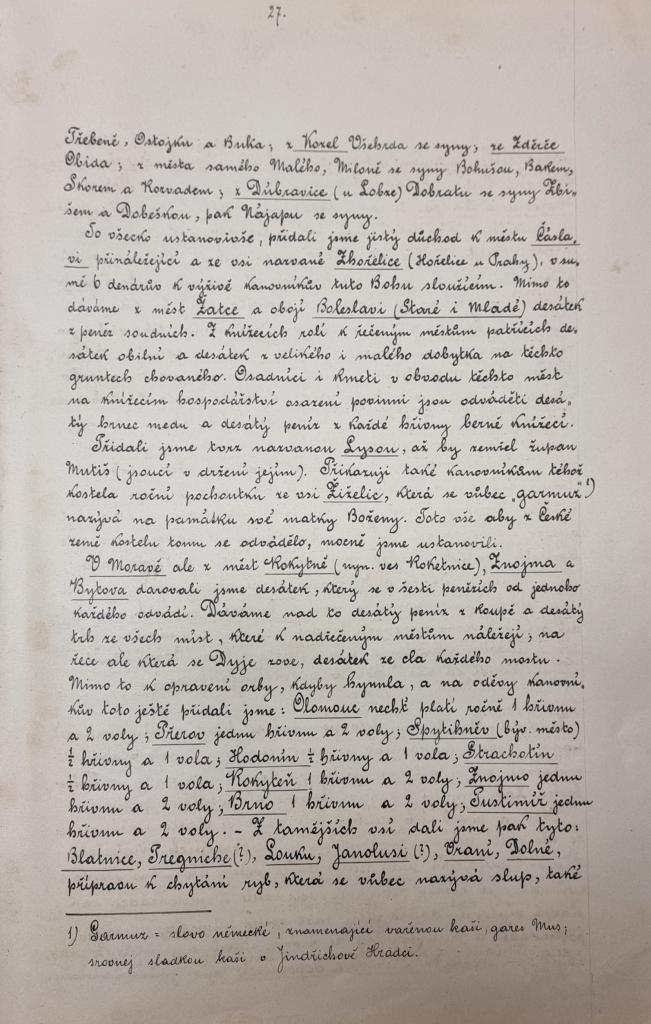 27.
Třebeně, Ostojku a Buka; z Kozel Všehrda se syny; ze Zderče
Obida; z města samého Malého, Miloně se syny Bohušou, Bakem,
Skorem a Rozvadem; z Dúbravice (u Lobze) Dobratu se syny Zbi-
šem a Dobeškou, pak Nájapu se syny.
To všecko ustanovivše, přidali jsme jistý důchod k městu Čásla,
vi přináležející a ze vsi nazvané Zhořelice (Hořelice u Prahy), v su-
mě 6 denárův k výživě kanovníkův tuto Bohu sloužícím. Mimo to
dáváme z měst Žatce a obojí Boleslavi (Staré i Mladé) desátek
z peněz soudních. Z knížecích rolí k řečeným městům patřících de-
sátek obilní a desátek z velikého i malého dobytka na těchto
gruntech chovaného. Osadníci i kmeti v obvodu těchto měst
na knížecím hospodářství osazení povinni jsou odváděti desá-
tý hrnec medu a desátý peníz z každé hřivny berně knížecí.
Přidali jsme tvrz nazvanou Lysou, až by zemřel župan
Mutiš (jsoucí v držení jejím). Přikazuji také kanovníkům téhož
kostela roční pochoutku ze vsi Žiželic, která se vůbec „garmuz“ 1)
nazývá na památku své matky Boženy. Toto vše aby z České
země kostelu tomu se odvádělo, mocně jsme ustanovili.
V Moravě ale z měst Rokytně (nyn. ves Roketnice), Znojma a
Bytova darovali jsme desátek, který se v šesti penězích od jednoho
každého odvádí. Dáváme nad to desátý peníz z koupě a desátý
trh ze všech míst, které k nadřečeným městům náležejí; na
řece ale která se Dyje zove, desátek ze cla každého mostu.
Mimo to k opravení orby, kdyby hynula, a na oděvy kanovní-
kův toto ještě přidali jsme: Olomouc nechť platí ročně 1 hřivnu
a 2 voly; Přerov jednu hřivnu a 2 voly; Spytihněv (býv. město)
½ hřivny a 1 vola; Hodonín ½ hřivny a 1 vola; Strachotín
½ hřivny a 1 vola; Rokyteň 1 hřivnu a 2 voly; Znojmo jednu
hřivnu a 2 voly; Brno 1 hřivnu a 2 voly; Pustiměř jednu
hřivnu a 2 voly. – Z tamějších vsí dali jsme pak tyto:
Blatnice, Tregniche (?), Louku, Janolusi (?), Vraní, Dolně,
přípravu k chytání ryb, která se vůbec nazývá slup, také
1) Garmuz = slovo německé, znamenající vařenou kaši, gares Mus;
srovnej sladkou kaši v Jindřichově Hradci.